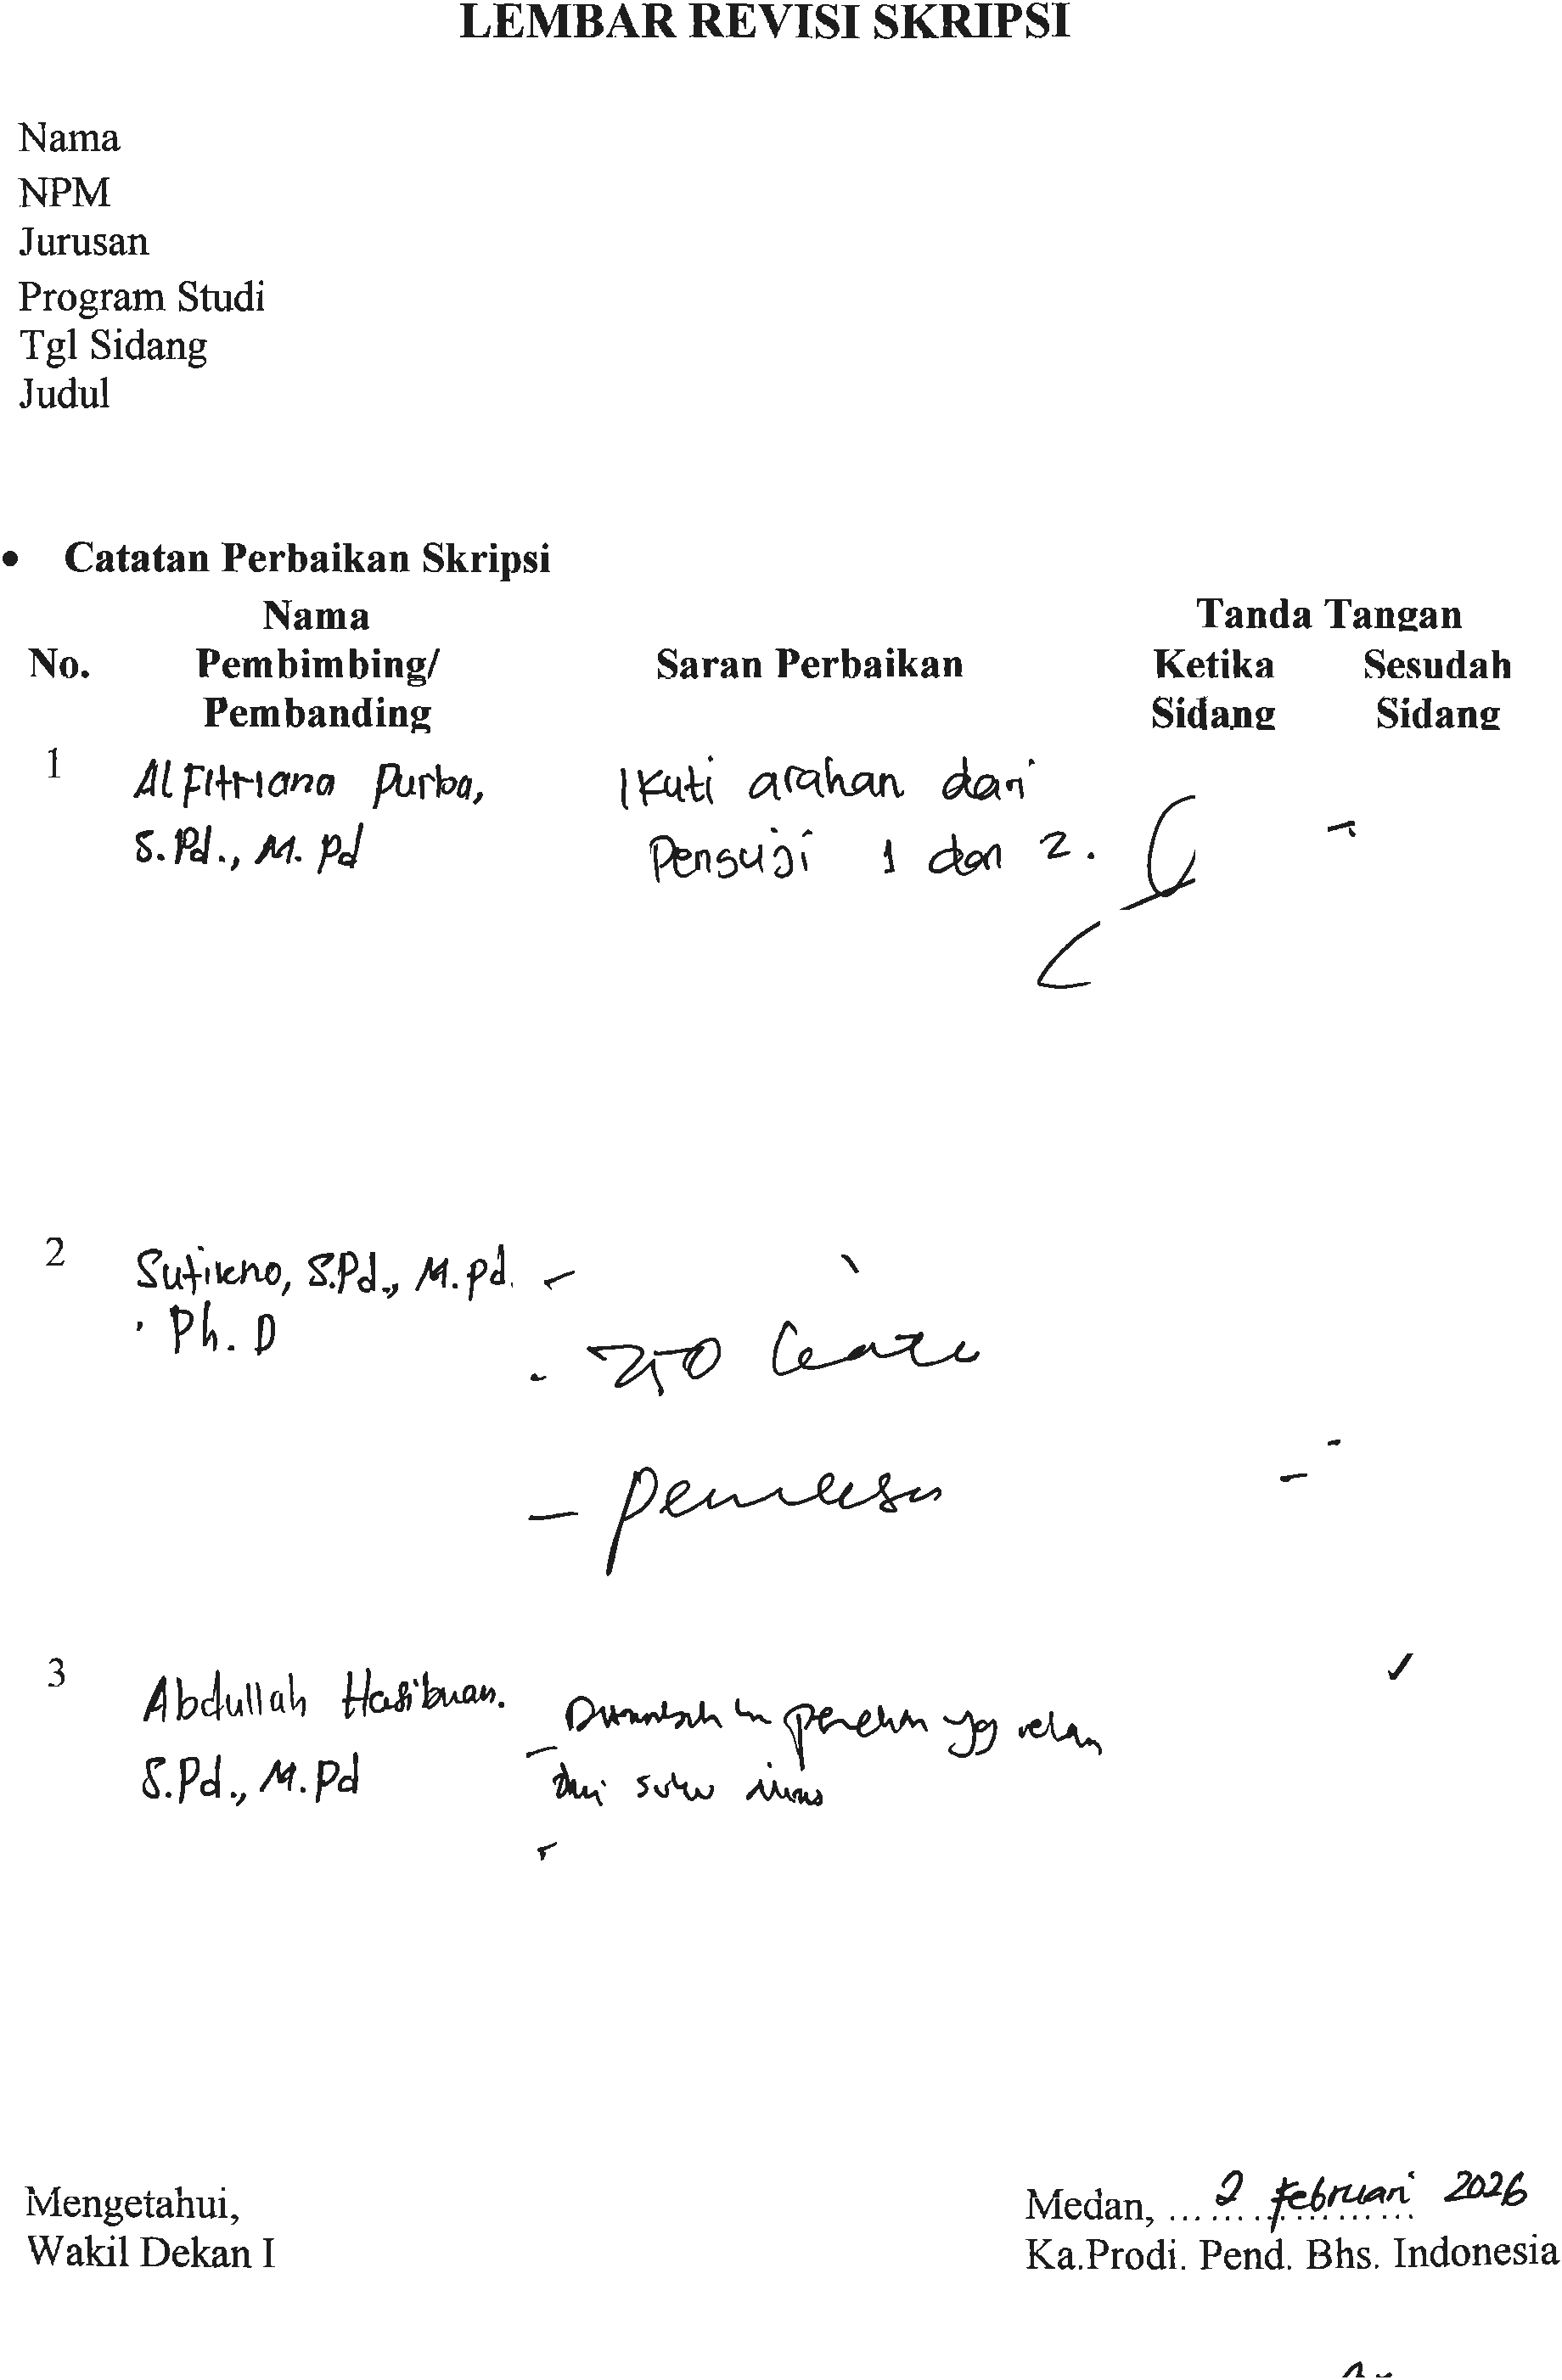 LEMBAR REVISI SKRIPSI
Nama
NPM
Jurusan
Program Studi
Tgl Sidang
Judul
• Catatan Perbaikan Skripsi
No. Nama Pembimbing/ Pembanding Saran Perbaikan Tanda Tangan
Ketika Sidang Sesudah Sidang
1 Alfitriana Purba, Ikuti arahan dari
S.Pd., M.Pd Penguji 1 dan 2.
2 Sutikno, S.Pd., M.Pd.
Ph.D
3 Abdullah Hasibuan.
S.Pd., M.Pd dari suku
Mengetahui, Medan, ... 2 februari 2026
Wakil Dekan I Ka.Prodi. Pend. Bhs. Indonesia